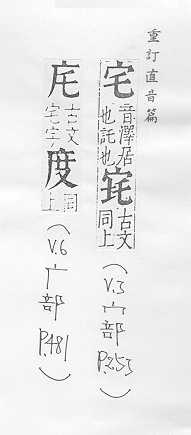 重訂直音篇
宅音澤居也託也古文同上(V.3宀部P.253)
㡯古文宅字度同上(V.6广部P.481)